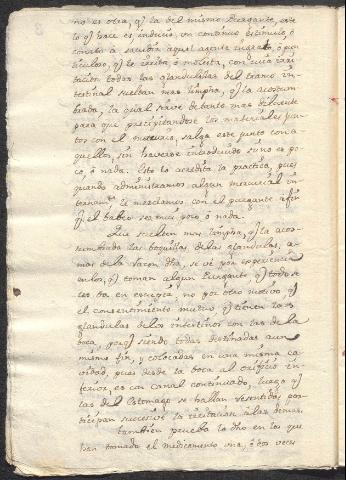 no es otra, q̃ la del mismo Purgante, este
lo q̃ hace es inducir, un continuo estimulo, ó
conato à sacudir aquel agente ingrato, ó par
ticulas, q̃ le irrita ò molesta, con cuia irri
tacion todas las glandulillas del tramo in-
testinal sueltan mas limpha, q̃ la acostum
brada, la qual sirve de tanto mas diluente
para que precipitandose los materiales jun
tos con el mercurio, salga este junto con a
quellos, sin haverse introducido sino es po
co, ò nada. Esto lo acredita la practica, pues
quando administramos algun mercurial in
ternam.te le mezclamos con el purgante à fin
q̃ el babeo sea muy poco ò nada.
Que suelten mas limpha, q̃ la acos-
tumbrada las boquillas, de las glandulas, a-
mas de la razon dha, se vè por experiencia
en los, q̃ toman algun Purgante q̃ todo se
les và en escupir no por otro motivo q̃
el consentimiento mutuo, q̃ tienen las
glandulas de los intestinos con las de la
boca, porq̃ siendo todas destinadas à un
mismo fin, y colocadas en una misma ca
vidad, pues desde la boca al orificio in-
ferior, es un canal continuado, luego q̃
las del Estomago se hallan resentidas par-
ticipan sucesive la irritacion à las demas.
Tambien prueba lo dho en los que
han tomado el medicamento una, ò dos veces